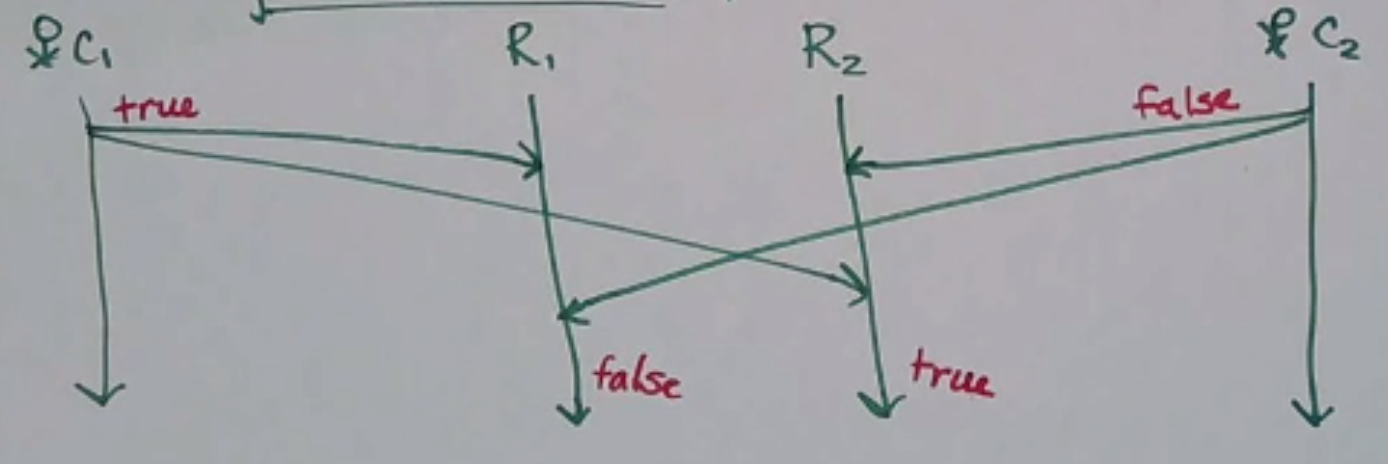 C₁ R₁ R₂ C₂
true false
false true